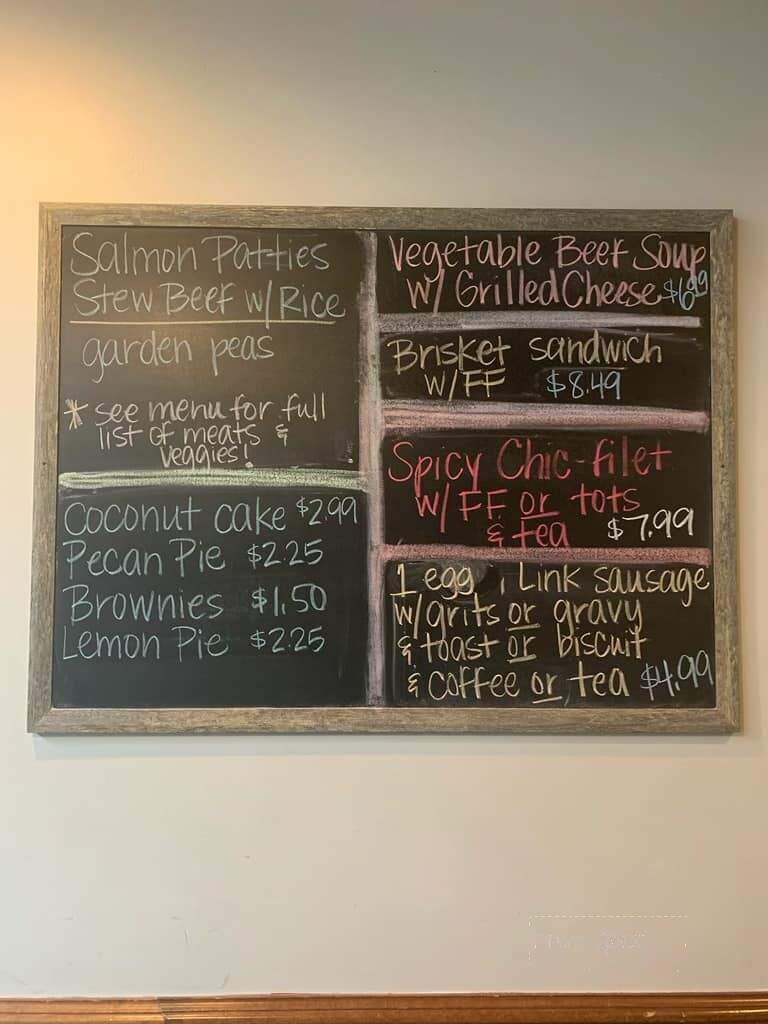 Salmon Patties
Stew Beef w/ Rice
garden peas
* see menu for full
list of meats &
veggies!
Coconut cake $2.99
Pecan Pie $2.25
Brownies $1.50
Lemon Pie $2.25
Vegetable Beef Soup
w/ Grilled Cheese $6.99
Brisket sandwich
w/FF $8.49
Spicy Chic-filet
w/ FF or tots
& tea $7.99
1 egg, Link sausage
w/grits or gravy
& toast or biscuit
& coffee or tea $4.99